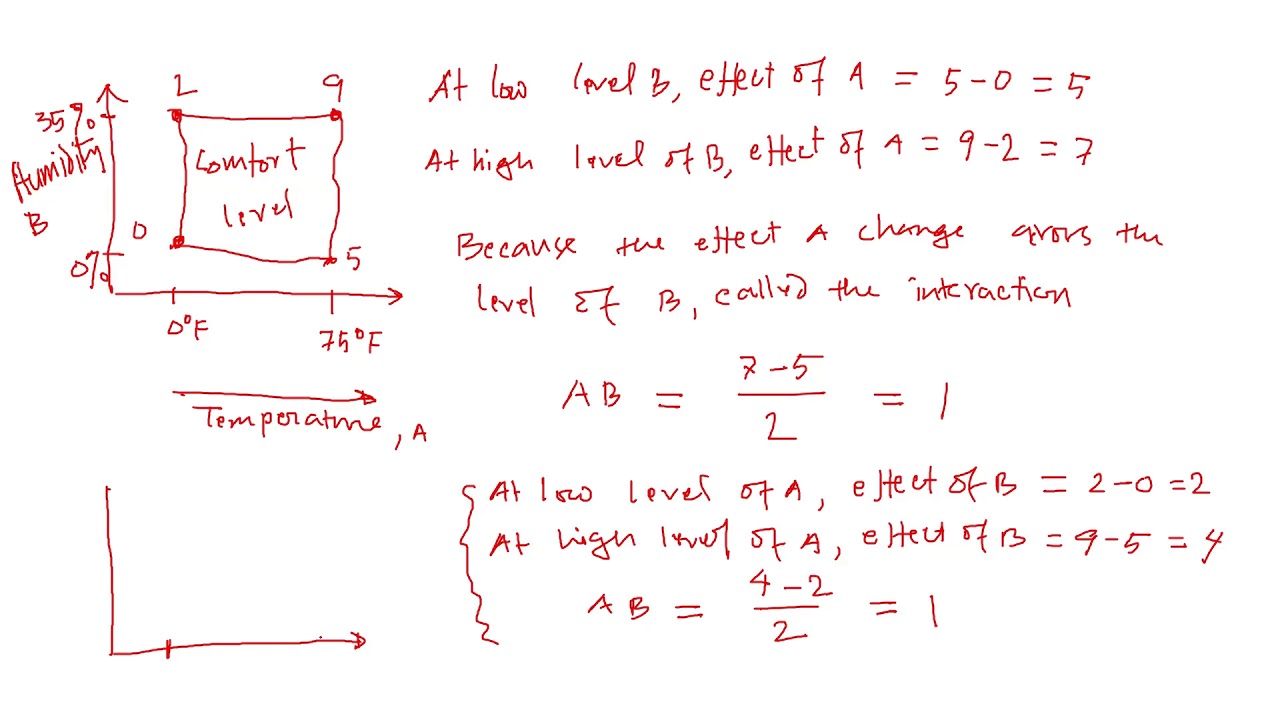 2 9
35%
Humidity
B
Comfort
level
0
5
0%
0°F
75°F
Temperature, A
At low level B, effect of A = 5-0 = 5
At high level of B, effect of A = 9-2 = 7
Because the effect A change across the
level of B, called the interaction
AB = \frac{7-5}{2} = 1
At low level of A, effect of B = 2-0 = 2
At high level of A, effect of B = 9-5 = 4
AB = \frac{4-2}{2} = 1